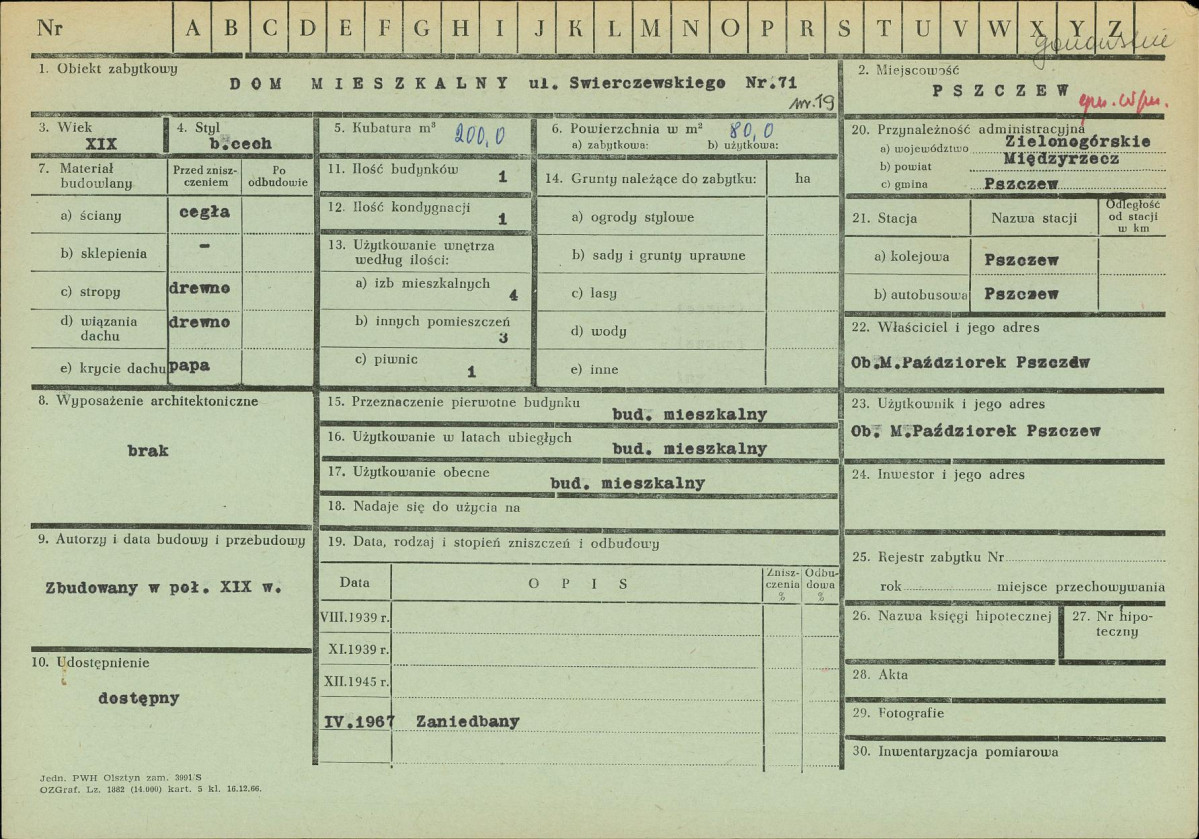 Nr A B C D E F G H I J K L M N O P R S T U V W X Y Z
1. Obiekt zabytkowy
DOM MIESZKALNY ul. Swierczewskiego Nr.71
nr.19
2. Miejscowość
PSZCZEW
3. Wiek
XIX
4. Styl
b.cech
5. Kubatura m³ 200,0
6. Powierzchnia w m² 80,0
a) zabytkowa: b) użytkowa:
7. Materiał budowlany
Przed zniszczeniem
Po odbudowie
a) ściany cegła
b) sklepienia –
c) stropy drewno
d) wiązania dachu drewno
e) krycie dachu papa
8. Wyposażenie architektoniczne
brak
9. Autorzy i data budowy i przebudowy
Zbudowany w poł. XIX w.
10. Udostępnienie
dostępny
11. Ilość budynków 1
12. Ilość kondygnacji 1
13. Użytkowanie wnętrza według ilości:
a) izb mieszkalnych 4
b) innych pomieszczeń 3
c) piwnic 1
14. Grunty należące do zabytku: ha
a) ogrody stylowe
b) sady i grunty uprawne
c) lasy
d) wody
e) inne
15. Przeznaczenie pierwotne budynku bud. mieszkalny
16. Użytkowanie w latach ubiegłych bud. mieszkalny
17. Użytkowanie obecne bud. mieszkalny
18. Nadaje się do użycia na
19. Data, rodzaj i stopień zniszczeń i odbudowy
Data OPIS Zniszczenia % Odbudowa %
VIII.1939 r.
XI.1939 r.
XII.1945 r.
IV.1967 Zaniedbany
20. Przynależność administracyjna
a) województwo Zielonogórskie
b) powiat Międzyrzecz
c) gmina Pszczew
21. Stacja Nazwa stacji Odległość od stacji w km
a) kolejowa Pszczew
b) autobusowa Pszczew
22. Właściciel i jego adres
Ob.M.Paździorek Pszczew
23. Użytkownik i jego adres
Ob. M.Paździorek Pszczew
24. Inwestor i jego adres
25. Rejestr zabytku Nr
rok miejsce przechowywania
26. Nazwa księgi hipotecznej
27. Nr hipoteczny
28. Akta
29. Fotografie
30. Inwentaryzacja pomiarowa
Jedn. PWH Olsztyn zam. 3991/S
OZGraf. Lz. 1882 (14.000) kart. 5 kl. 16.12.66.